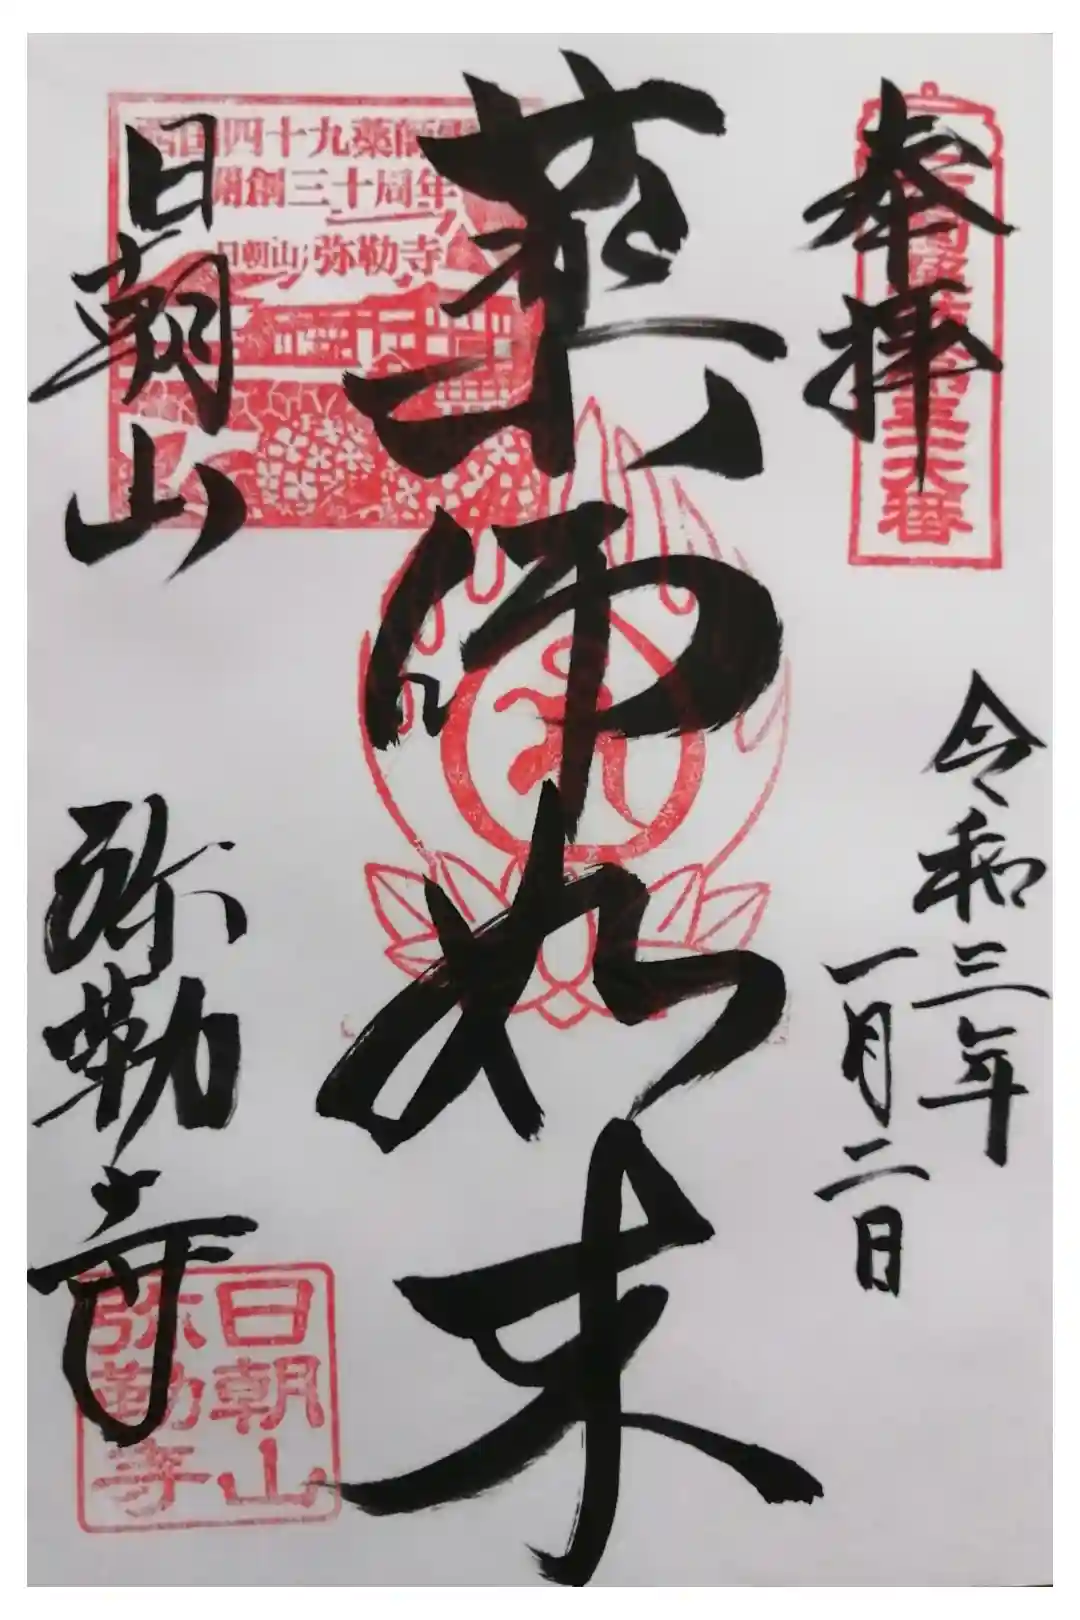 奉拝
令和三年
一月二日
薬師如来
日朝山
弥勒寺
西国四十九薬師霊
開創三十周年
日朝山 弥勒寺
日朝山
弥勒寺